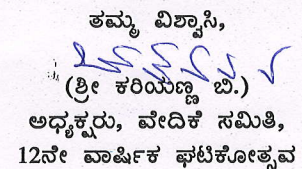 ತಮ್ಮ ವಿಶ್ವಾಸಿ,
(ಶ್ರೀ ಕರಿಯಣ್ಣ ಬಿ.)
ಅಧ್ಯಕ್ಷರು, ವೇದಿಕೆ ಸಮಿತಿ,
12ನೇ ವಾರ್ಷಿಕ ಘಟಿಕೋತ್ಸವ